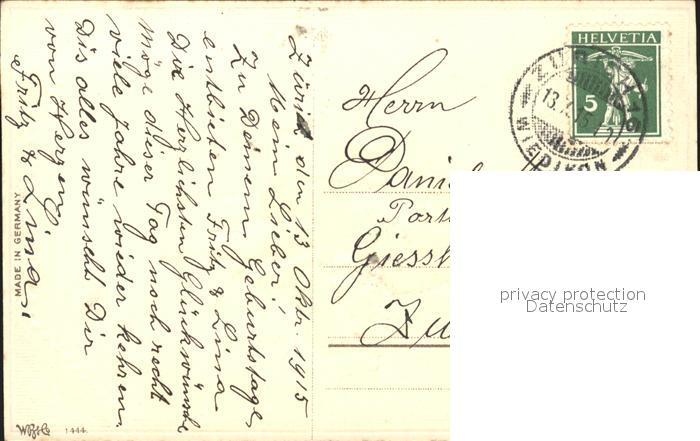 Zürich den 13 Okt. 1915
Mein Lieber!
Zu Deinem Geburtstage,
entbieten Fritz & Lina
Die Herzlichsten Glückwünsche
Möge dieser Tag noch recht
viele Jahre wieder kehren.
Dis alles wünscht Dir
von Herzen
Fritz & Lina
MADE IN GERMANY
1444
Herrn
HELVETIA
5
WIEDIKON
privacy protection
Datenschutz